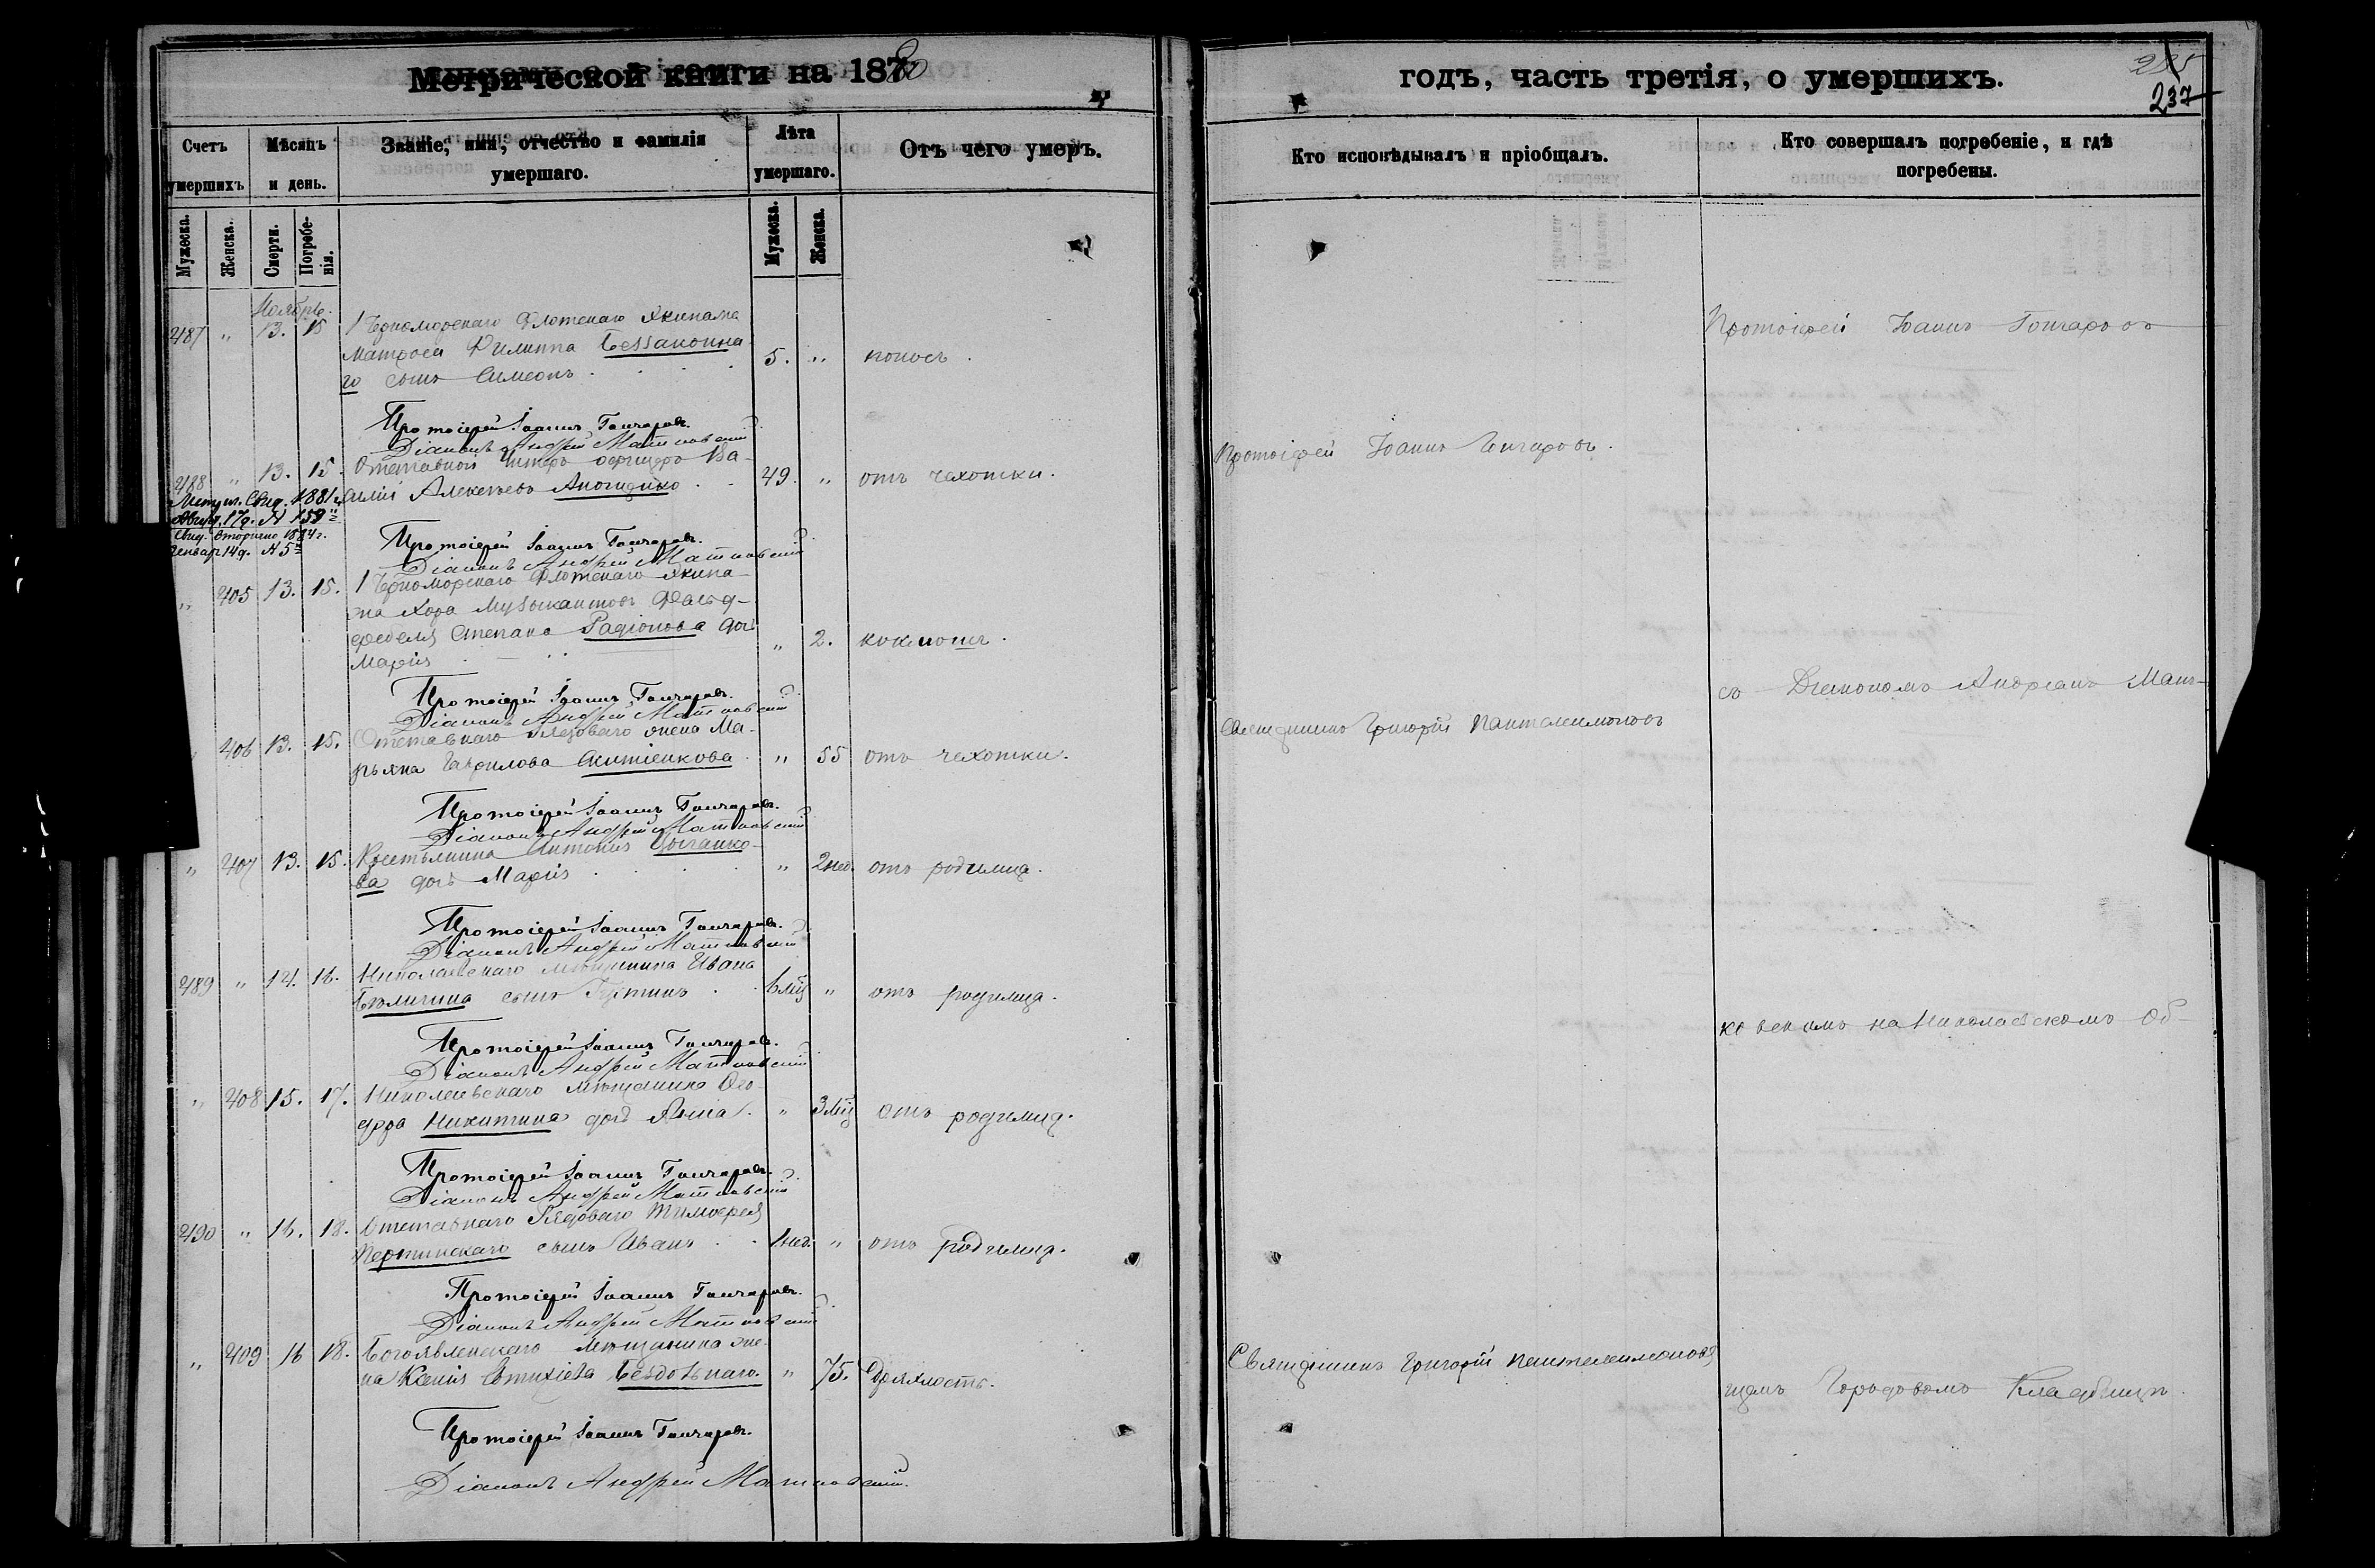 Метрической книги на 1880
Счетъ умершихъ
Мѣсяцъ и день.
Званіе, имя, отчество и фамилія умершаго.
Лѣта умершаго.
Отъ чего умеръ.
Мужеска.
Женска.
Смерти.
Погребенія.
Мужеска.
Женска.
Ноябрь.
487 " 13. 15 1 Черноморскаго Флотскаго Экипажа
матроса Филиппа
го сынъ Симеонъ 5. " поносъ.
Протоіерей Іоаннъ Гончаровъ.
Діаконъ Андрей Матковскій
488 " 13. 15. Отставной Унтеръ офицеръ Ва-
силій Алексѣевъ 49. " отъ чахотки.
Метрич. Свид. 1881 г.
Август. 17 д. № 159
Свид. вторично 1884 г.
Генвар 14 д. № 5
Протоіерей Іоаннъ Гончаровъ.
Діаконъ Андрей Матковскій
" 405 13. 15. 1 Черноморскаго Флотскаго Экипа-
жа Хора Музыкантовъ Фельд-
фебеля Степана Радіонова дочь
Марія " 2. коклюшъ.
Протоіерей Іоаннъ Гончаровъ.
Діаконъ Андрей Матковскій
406 13. 15. Отставнаго Рядоваго жена Ма-
рьяна Гаврилова " 55 отъ чахотки.
Протоіерей Іоаннъ Гончаровъ.
Діаконъ Андрей Матковскій
" 407 13. 15. Крестьянина Антонія Цыганко-
ва дочь Марія " 2 нед. отъ родимца.
Протоіерей Іоаннъ Гончаровъ.
Діаконъ Андрей Матковскій
489 " 14. 16. Николаевскаго мѣщанина Ивана
сынъ 6 мц " отъ родимца.
Протоіерей Іоаннъ Гончаровъ.
Діаконъ Андрей Матковскій
" 408 15. 17. Николаевскаго мѣщанина Ѳео-
дора Никитина дочь Анна. " 3 мц отъ родимца.
Протоіерей Іоаннъ Гончаровъ.
Діаконъ Андрей Матковскій
490 " 16. 18. Отставнаго Рядоваго Тимоѳея
сынъ Иванъ нед. " отъ родимца.
Протоіерей Іоаннъ Гончаровъ.
Діаконъ Андрей Матковскій
" 409 16 18. Богоявленскаго мѣщанина же-
на Ксенія Евтихіева " 75. Дряхлость.
Протоіерей Іоаннъ Гончаровъ.
Діаконъ Андрей Матковскій.
годъ, часть третія, о умершихъ.
237
Кто исповѣдывалъ и пріобщалъ.
Кто совершалъ погребеніе, и гдѣ погребены.
Протоіерей Іоаннъ Гончаровъ
Протоіерей Іоаннъ Гончаровъ.
съ Діакономъ Андреемъ Мат-
Священникъ Григорій Пантелеимоновъ
ковскимъ на Николаевскомъ Об-
Священникъ Григорій Пантелеимоновъ
щемъ Городовомъ Кладбищѣ.